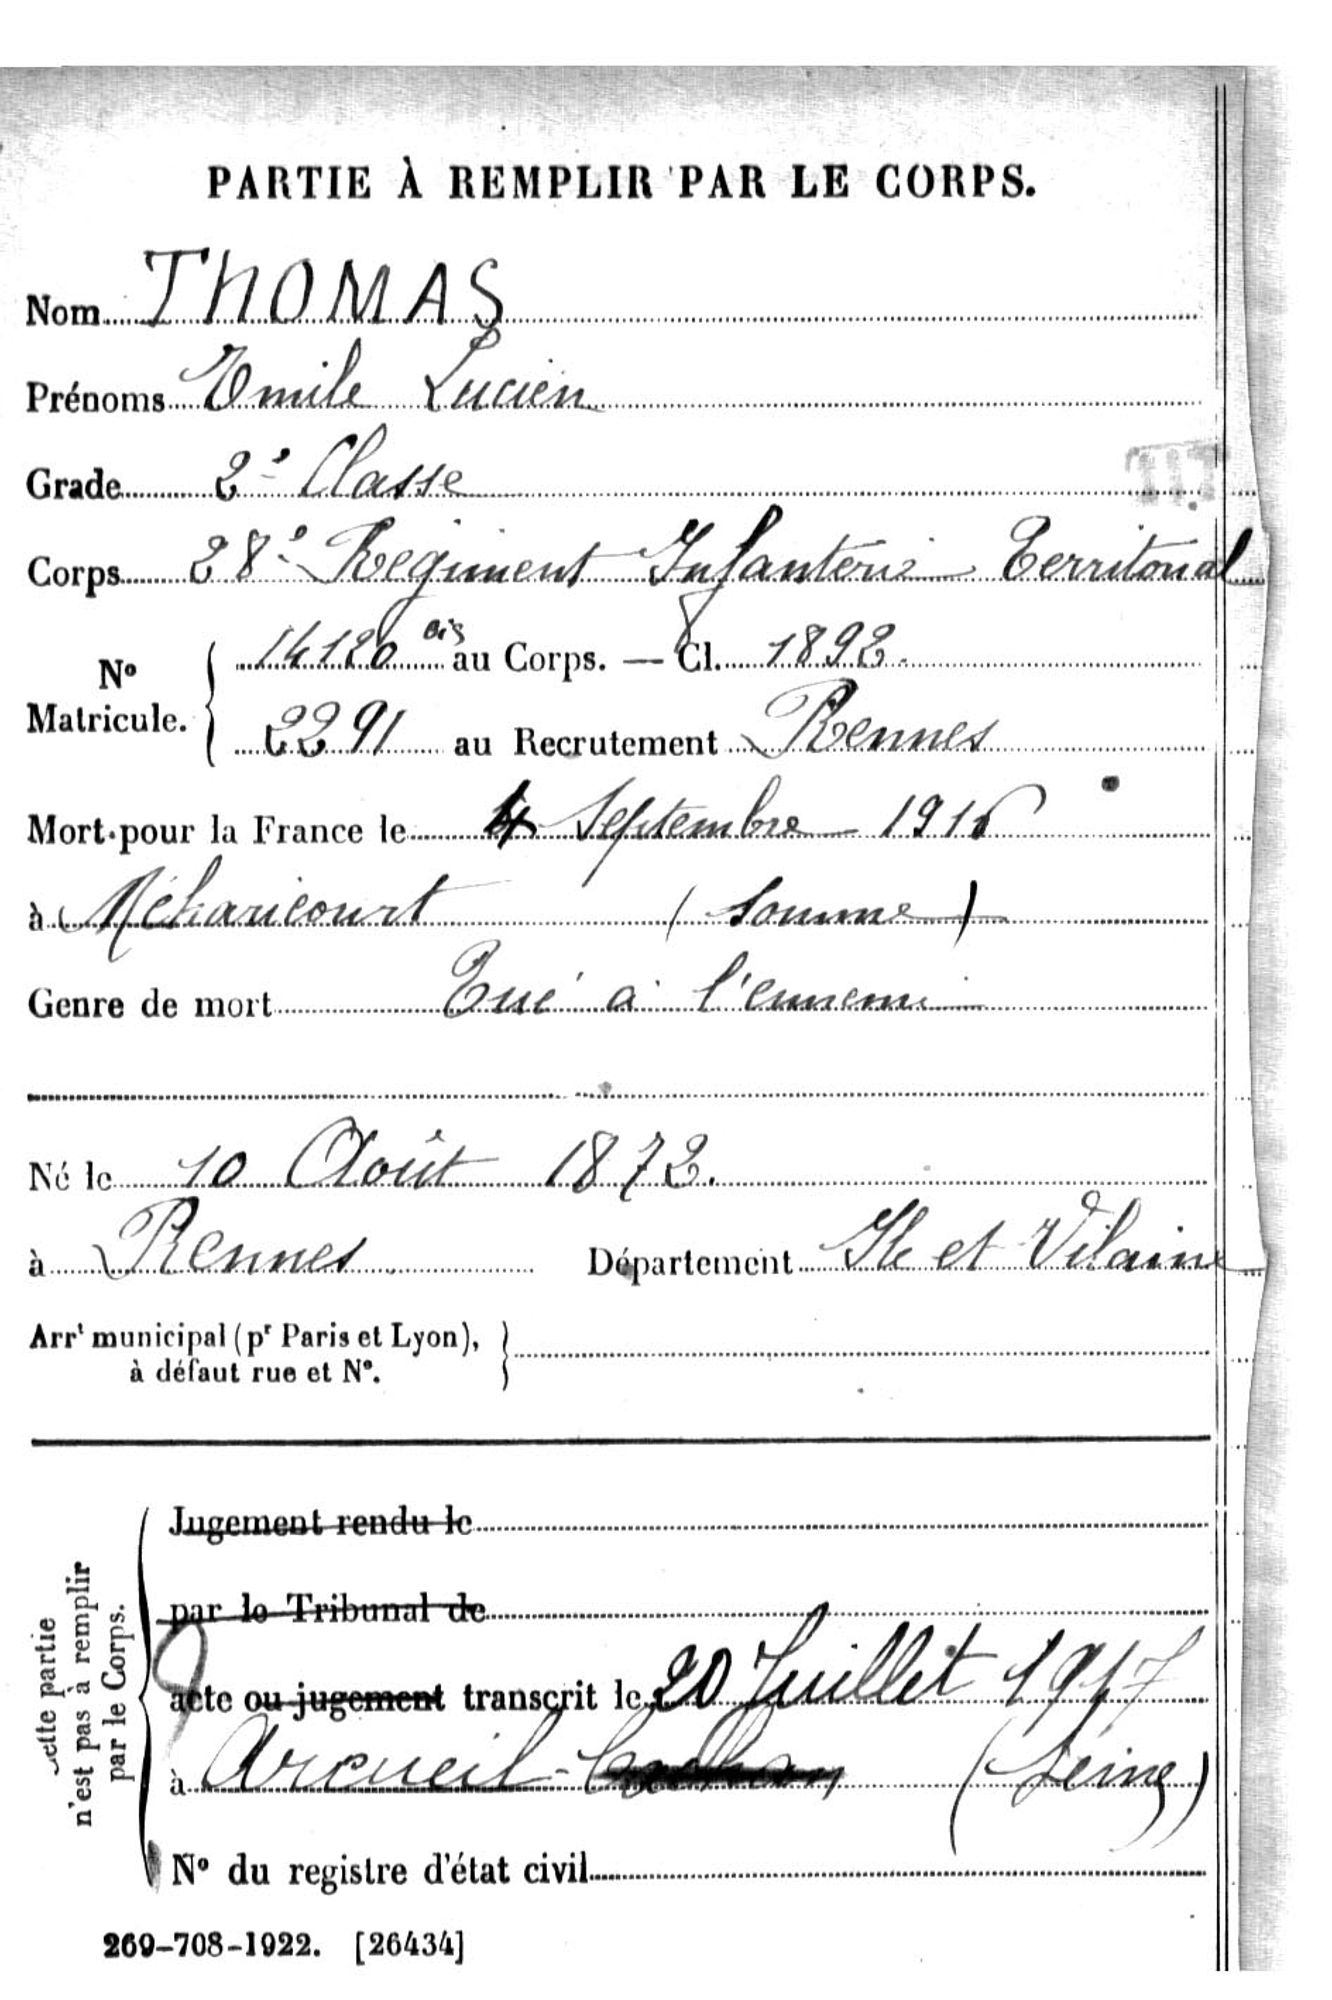 PARTIE À REMPLIR PAR LE CORPS.
Nom THOMAS
Prénoms Emile Lucien
Grade 2e Classe
Corps 28e Régiment Infanterie Territorial
No Matricule. 14120 bis au Corps. — Cl. 1892.
2291 au Recrutement Rennes
Mort pour la France le 4 Septembre 1916
à Méharicourt (Somme)
Genre de mort Tué à l'ennemi
Né le 10 Août 1872.
à Rennes Département Ile et Vilaine
Arrt municipal (pr Paris et Lyon),
à défaut rue et No.
Cette partie
n'est pas à remplir
par le Corps.
Jugement rendu le
par le Tribunal de
acte ou jugement transcrit le 20 Juillet 1917
à Arcueil- (Seine)
No du registre d'état civil
269-708-1922. [26434]